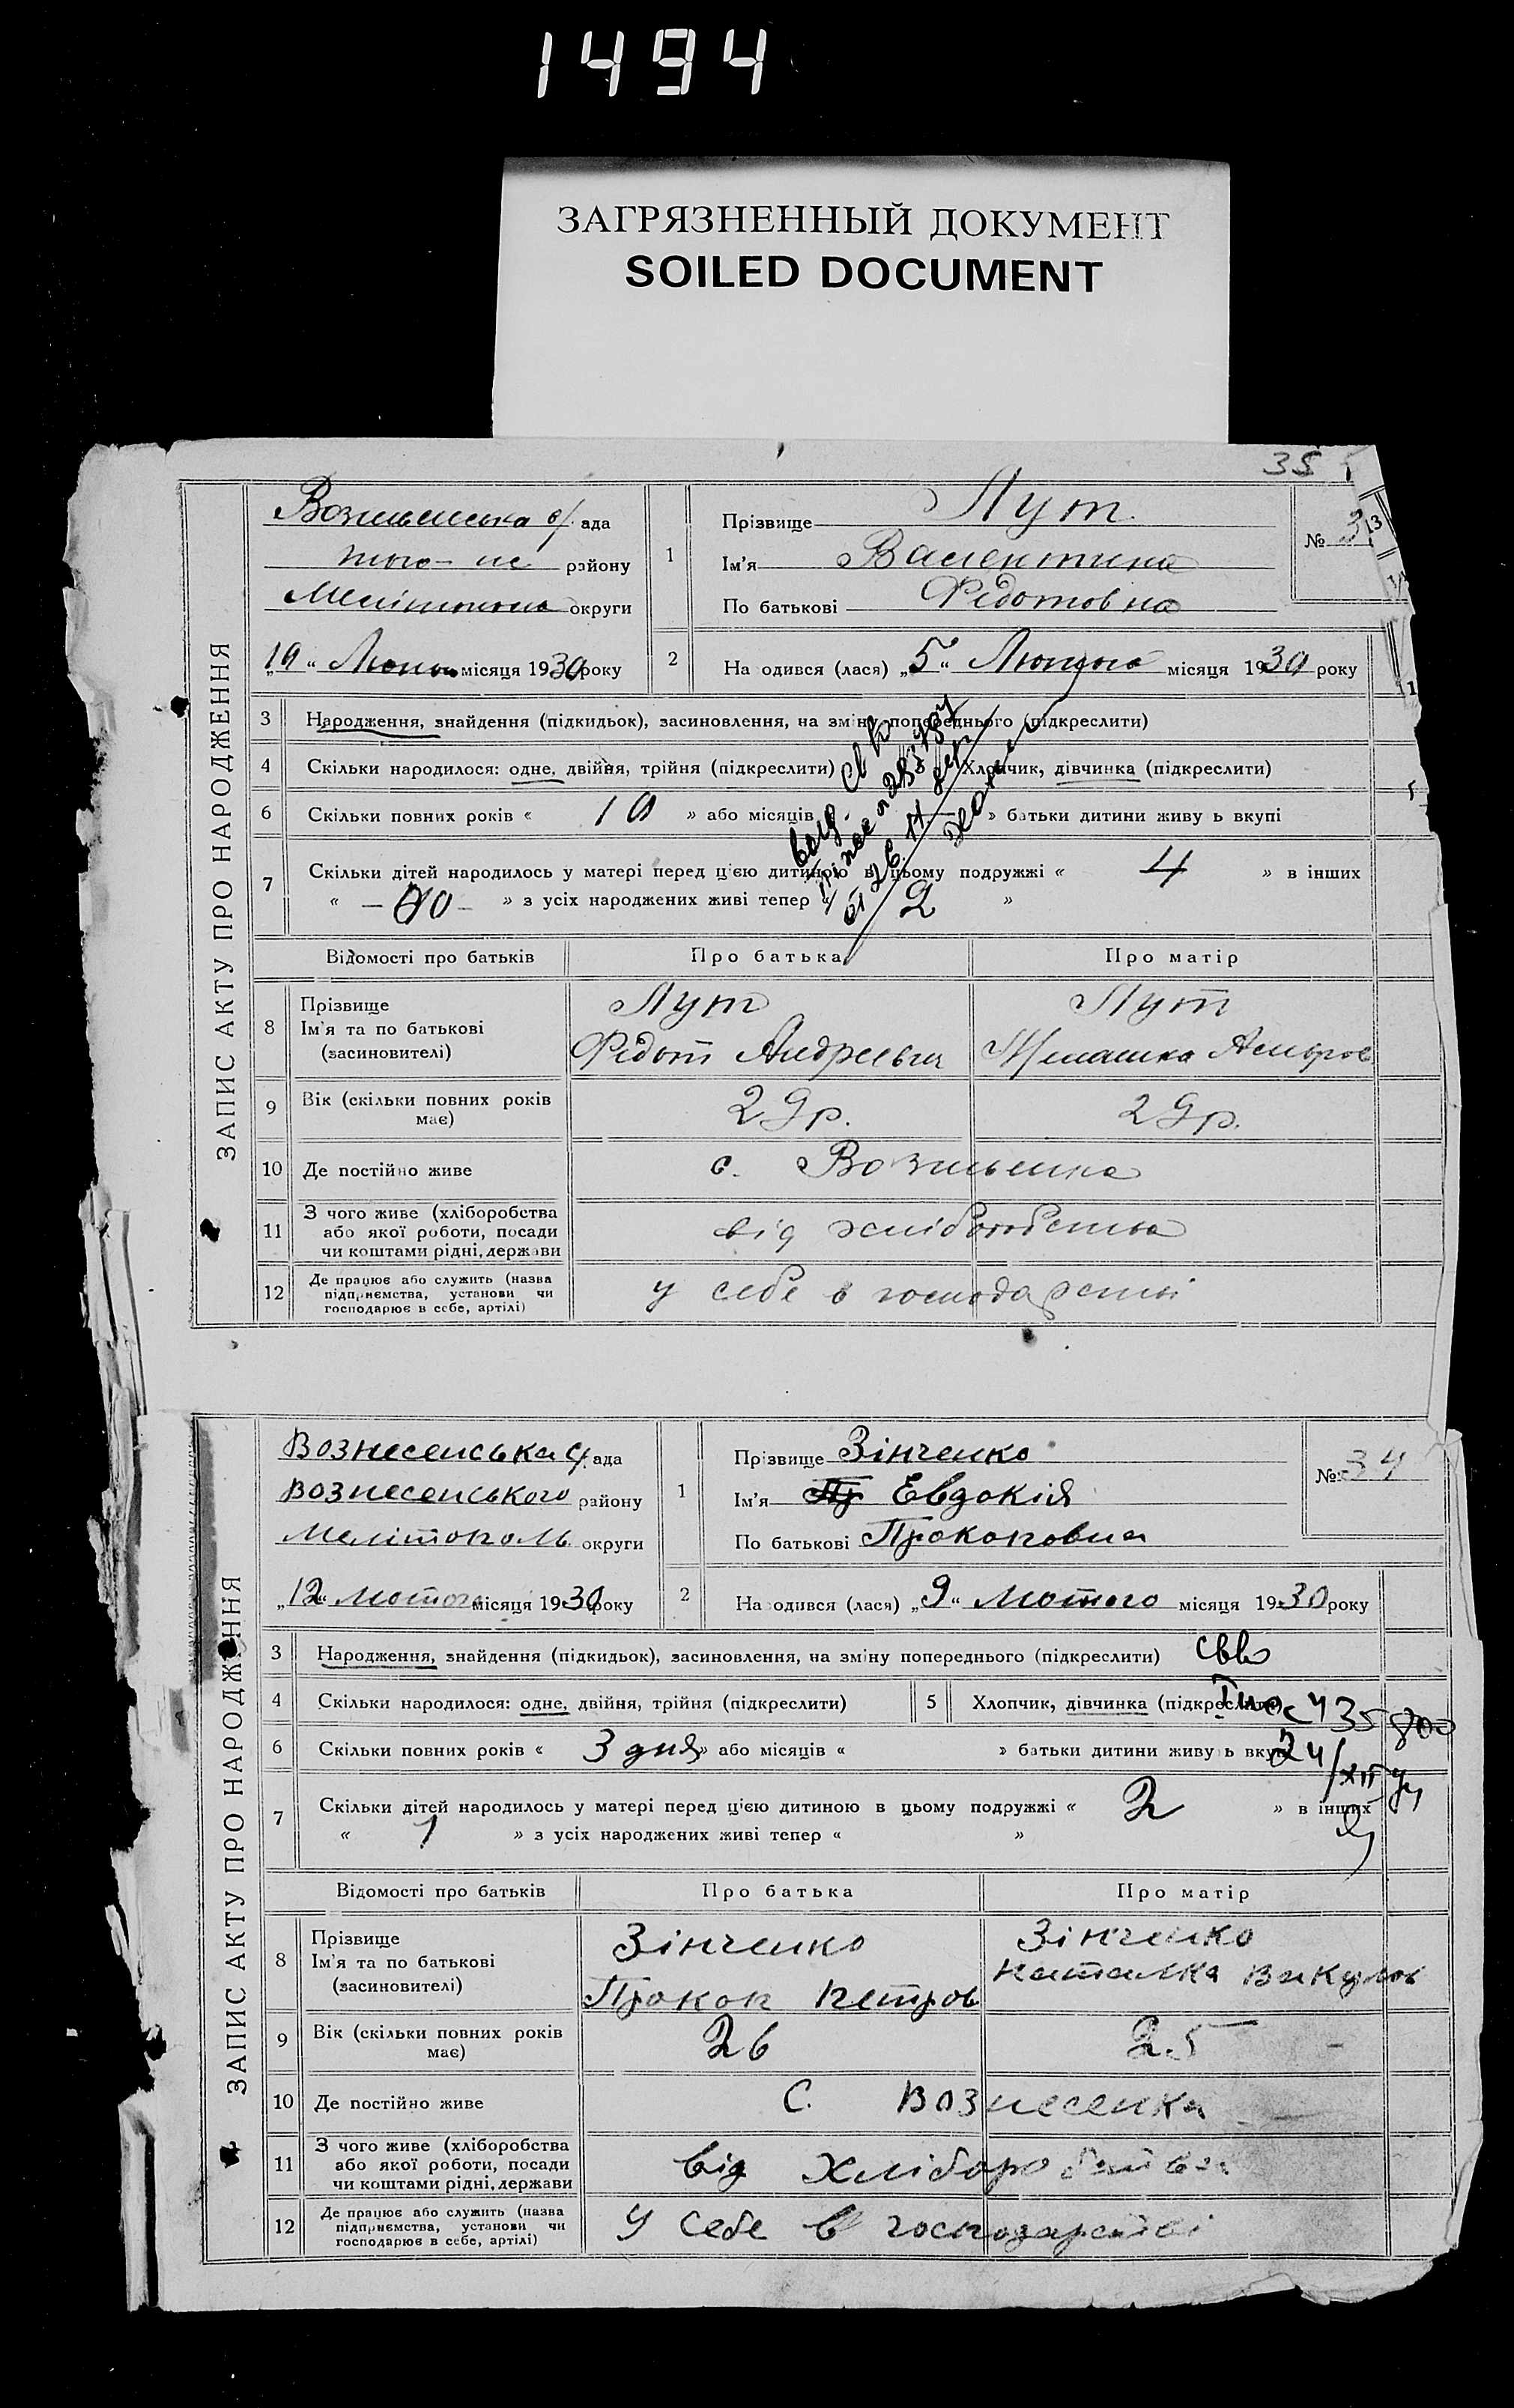 1494
ЗАГРЯЗНЕННЫЙ ДОКУМЕНТ
SOILED DOCUMENT
35
ЗАПИС АКТУ ПРО НАРОДЖЕННЯ
ада
того-же району
округи
„10" місяця 1930 року
1
Прізвище Пут
Ім'я Валентина
По батькові Федотовна
№ 3
2
На одився (лася) „5" Лютого місяця 1930 року
3 Народження, знайдення (підкидьок), засиновлення, на зміну попереднього (підкреслити)
4 Скільки народилося: одне, двійня, трійня (підкреслити) Хлопчик, дівчинка (підкреслити)
6 Скільки повних років « 10 » або місяців » батьки дитини живу ь вкупі
7 Скільки дітей народилось у матері перед цією дитиною в цьому подружжі « 4 » в інших
« » з усіх народжених живі тепер « 2 »
Відомості про батьків Про батька Про матір
8 Прізвище
Ім'я та по батькові
(засновителі)
Пут
Федот Андреевич
Пут
9 Вік (скільки повних років
має)
29р.
29р.
10 Де постійно живе
с. Вознесенка
11 З чого живе (хліборобства
або якої роботи, посади
чи коштами рідні, держави
від хліборобства
12 Де працює або служить (назва
підприємства, установи чи
господарює в себе, артілі)
у себе в господарстві
ЗАПИС АКТУ ПРО НАРОДЖЕННЯ
Вознесенська с/ ада
Вознесенського району
Мелітополь округи
„12" лютого місяця 1930 року
1
Прізвище Зінченко
Ім'я Евдокія
По батькові Прокоповна
№ 34
2
На одився (лася) „9" лютого місяця 1930 року
3 Народження, знайдення (підкидьок), засиновлення, на зміну попереднього (підкреслити)
4 Скільки народилося: одне, двійня, трійня (підкреслити) 5 Хлопчик, дівчинка (підкреслити)
6 Скільки повних років « 3 дня » або місяців « » батьки дитини живу ь вкупі
7 Скільки дітей народилось у матері перед цією дитиною в цьому подружжі « 2 » в інших
« 1 » з усіх народжених живі тепер « »
Відомості про батьків Про батька Про матір
8 Прізвище
Ім'я та по батькові
(засиновителі)
Зінченко
Прокоп Петров
Зінченко
Наталка Вакулов
9 Вік (скільки повних років
має)
26
25
10 Де постійно живе
С. Вознесенка
11 З чого живе (хліборобства
або якої роботи, посади
чи коштами рідні, держави
від хліборобства
12 Де працює або служить (назва
підприємства, установи чи
господарює в себе, артілі)
У себе в господарстві